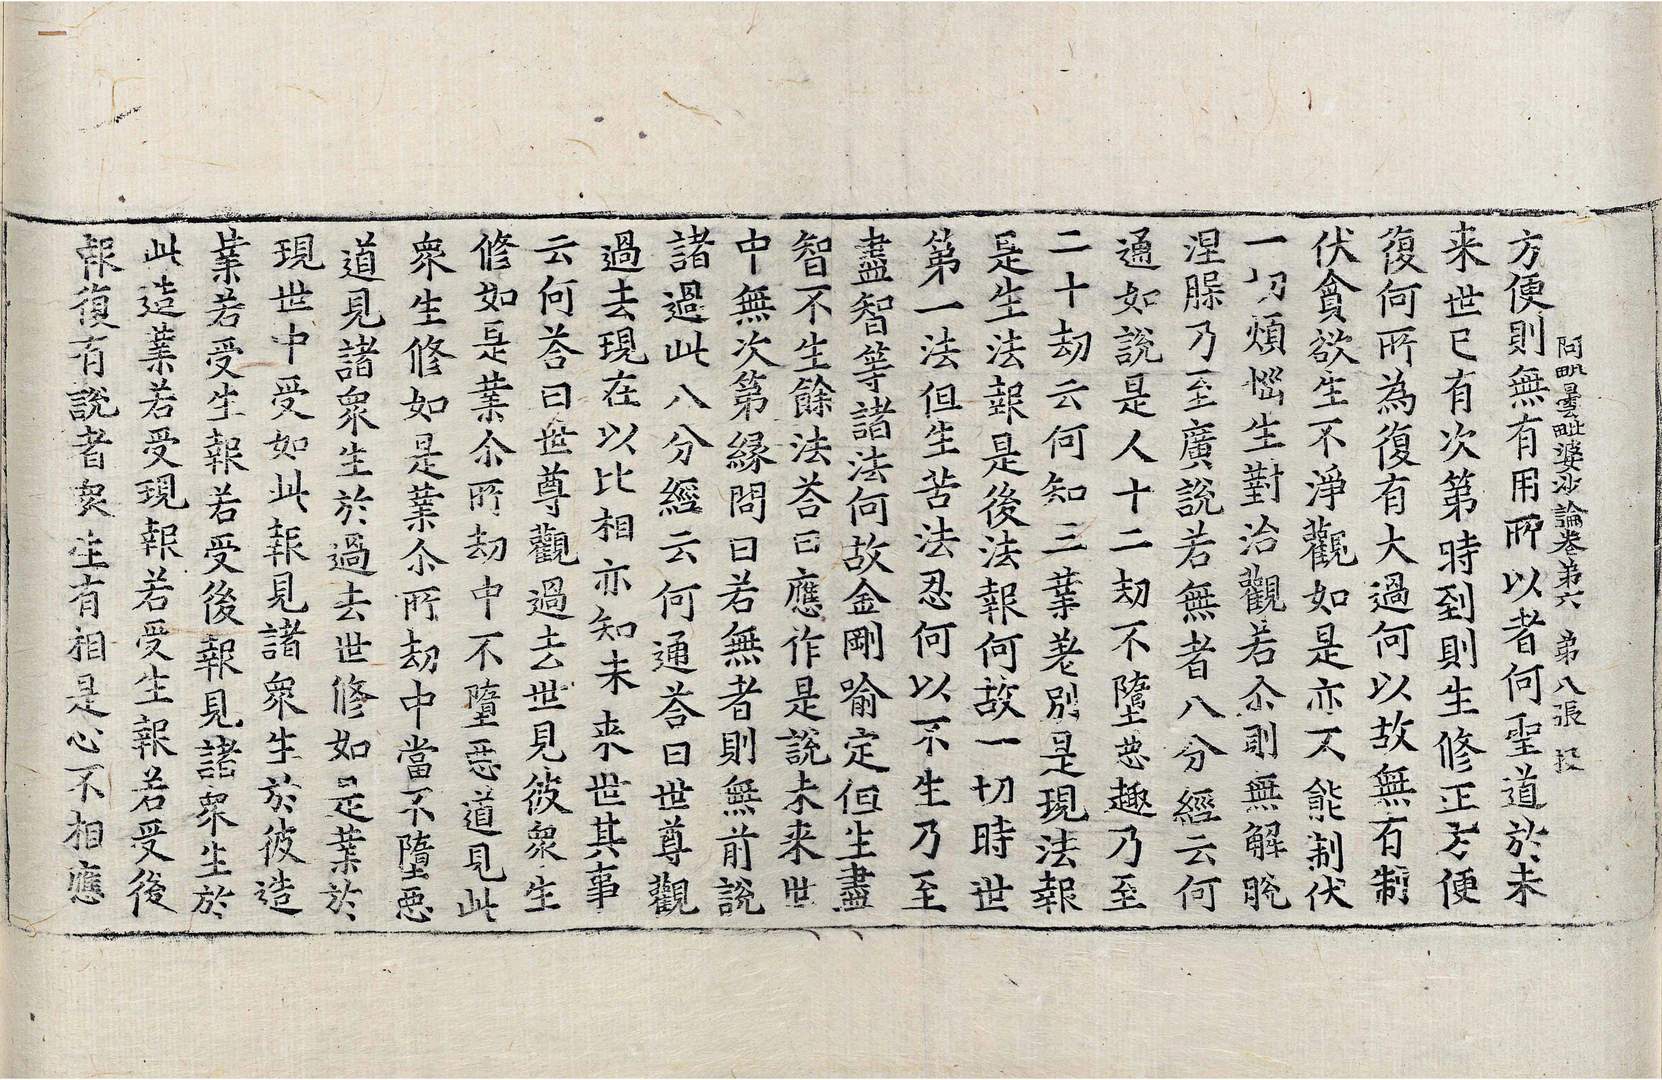 阿毗曇毗婆沙論卷第六　第八張　投
方便則無有用所以者何聖道於未
来世已有次第時到則生修正方便
復何所為復有大過何以故無有制
伏貪欲生不淨觀如是亦不能制伏
一切煩惱生對治觀若尒則無解脫
涅脲乃至廣說若無者八分經云何
通如說是人十二劫不墮惡趣乃至
二十劫云何知三業差別是現法報
是生法報是後法報何故一切時世
第一法但生苦法忍何以不生乃至
盡智等諸法何故金剛喻定但生盡
智不生餘法荅曰應作是說未来世
中無次第緣問曰若無者則無前說
諸過此八分經云何通荅曰世尊觀
過去現在以比相亦知未来世其事
云何荅曰世尊觀過去世見彼衆生
修如是業尒所劫中不墮惡道見此
衆生修如是業尒所劫中當不墮惡
道見諸衆生於過去世修如是業於
現世中受如此報見諸衆生於彼造
業若受生報若受後報見諸衆生於
此造業若受現報若受生報若受後
報復有說者衆生有相是心不相應